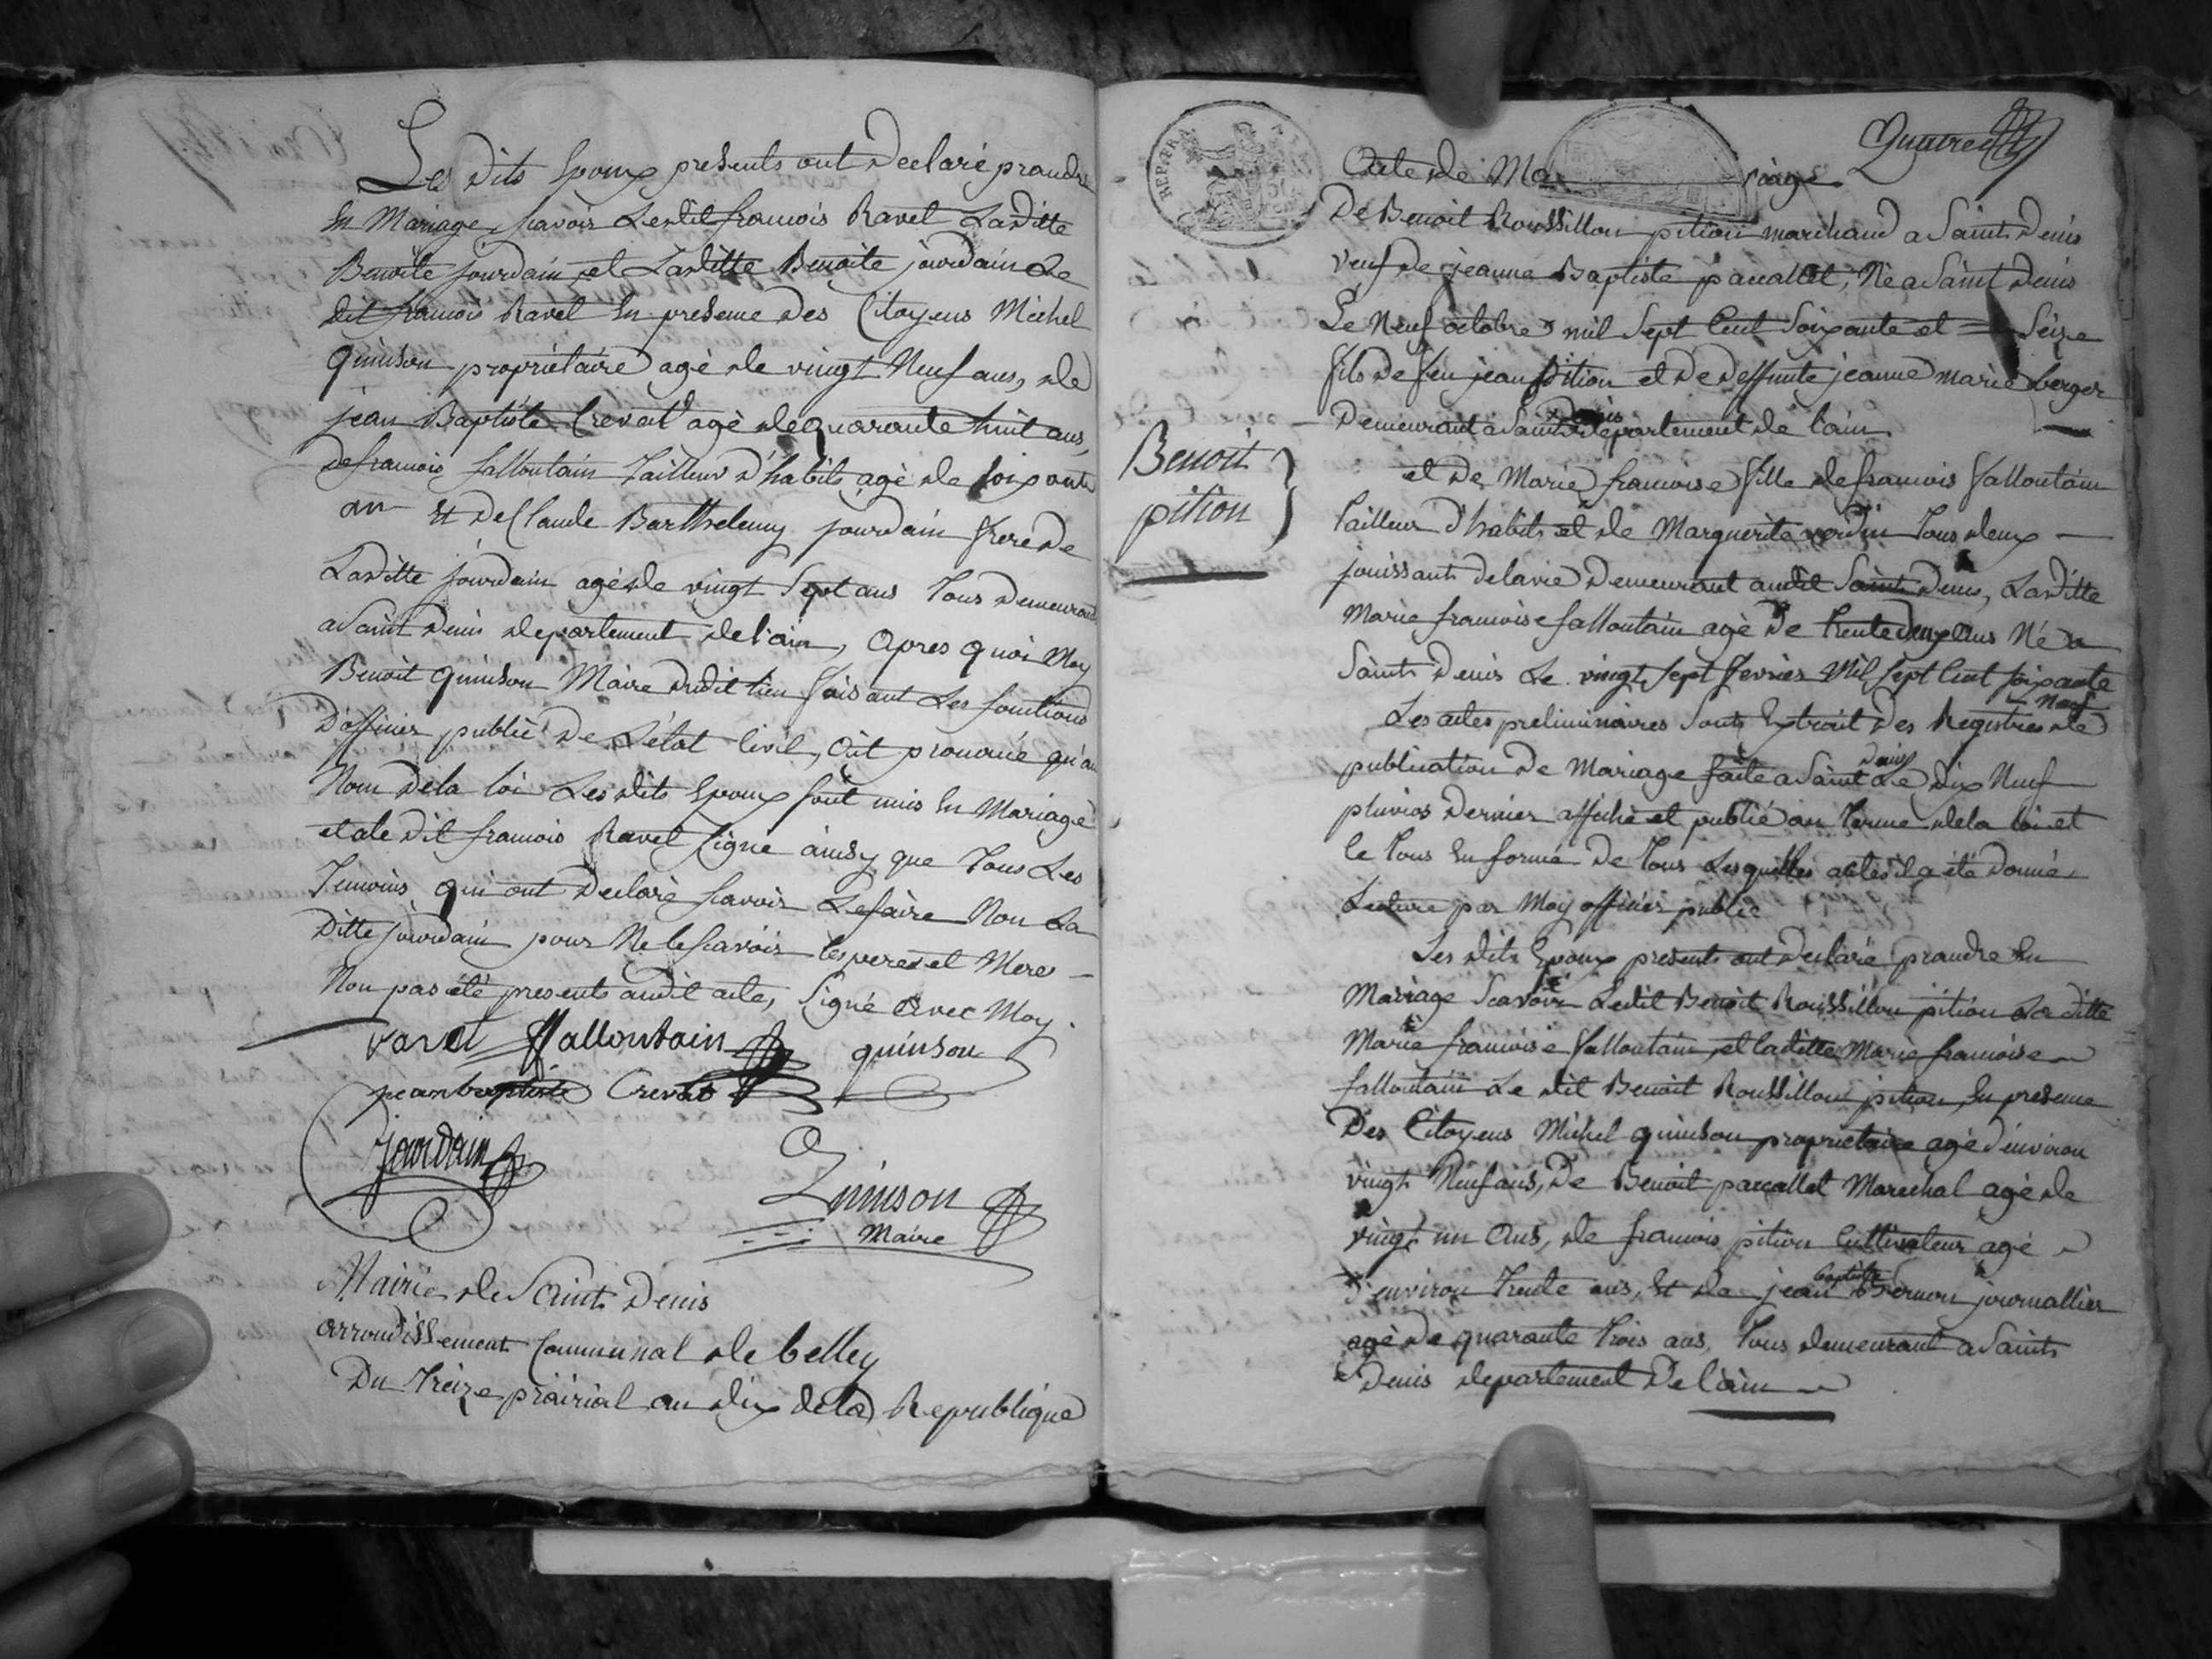 Les dits Epoux presents ont Declaré prandre
En Mariage, scavoir Le dit francois Ravet La ditte
Benoite jourdain et La ditte Benoite jourdain Le
dit francois Ravet En presence des Citoyens Michel
quinson propriétaire agé de vingt Neuf ans, de
jean Baptiste Crevat agé de quarante huit ans,
de francois falloutain Tailleur d'habits agé de soixante
an Et de Claude Barthelemy jourdain frere de
La ditte jourdain agé de vingt Sept ans Tous Demeurand
a Saint Denis departement de l'ain, Apres quoi Moy
Benoit quinson Maire dudit lieu faisant Les fonctions
D'officier publié De L'état Civil, Ait prononcé qu'au
Nom De la loi Les dits Epoux sont unis En Mariage
et a le dit francois Ravet signé ainsy que Tous Les
Temoins qui ont Declaré scavoir Le faire Non La
Ditte jourdain pour Ne le scavoir les peres et Meres
Non pas été presents au dit acte, Signé Avec Moy.
ravet falloutain quinson
jean baptiste Crevat
Jourdain
Quinson
Maire
Mairie de Saint Denis
arrondissement Communal de belley
Du Treize prairial an dix de la Republique
Quatre
REP. FRA.
Acte de Mariage
De Benoit Roussillon pition marchand a Saint Denis
veuf de jeanne Baptiste paccallet, Né a Saint Denis
Le Neuf octobre mil Sept Cent Soixante et Seize
fils de feu jean pition et De Deffunte jeanne marie berger
Demeurant a Saint Denis departement de l'ain
Benoit
pition
et De Marie francoise fille de francois falloutain
Tailleur d'habits et de Marguerite verdin Tous deux
jouissants de la vie Demeurant au dit Saint Denis, La ditte
Marie francoise falloutain agé De Trente deux Ans Né a
Saint Denis Le vingt sept fevrier Mil sept Cent soixante
Neuf
Les actes preliminaires Sont Extrait Des Registres de
publication De Mariage faite a Saint Denis Le Dix Neuf
pluvios Dernier affiché et publié au Terme de la loi et
le Tous En forme De Tous Lesquelles actes il a été Donné
Lecture par Moy officier publié
Les dits Epoux presents ont Declaré prandre En
Mariage Scavoir Le dit Benoit Roussillon pition La ditte
Marie francoise falloutain et la ditte Marie francoise
falloutain Le dit Benoit Roussillon pition, En presence
Des Citoyens Michel quinson proprietaire agé d'environ
vingt Neuf ans, De Benoit paccallet Marechal agé de
vingt un Ans, de francois pition Cultivateur agé
d'environ Trente ans, Et de jean baptiste Bernon journallier
agé De quarante Trois ans, Tous demeurant a Saint
Denis departement De l'ain